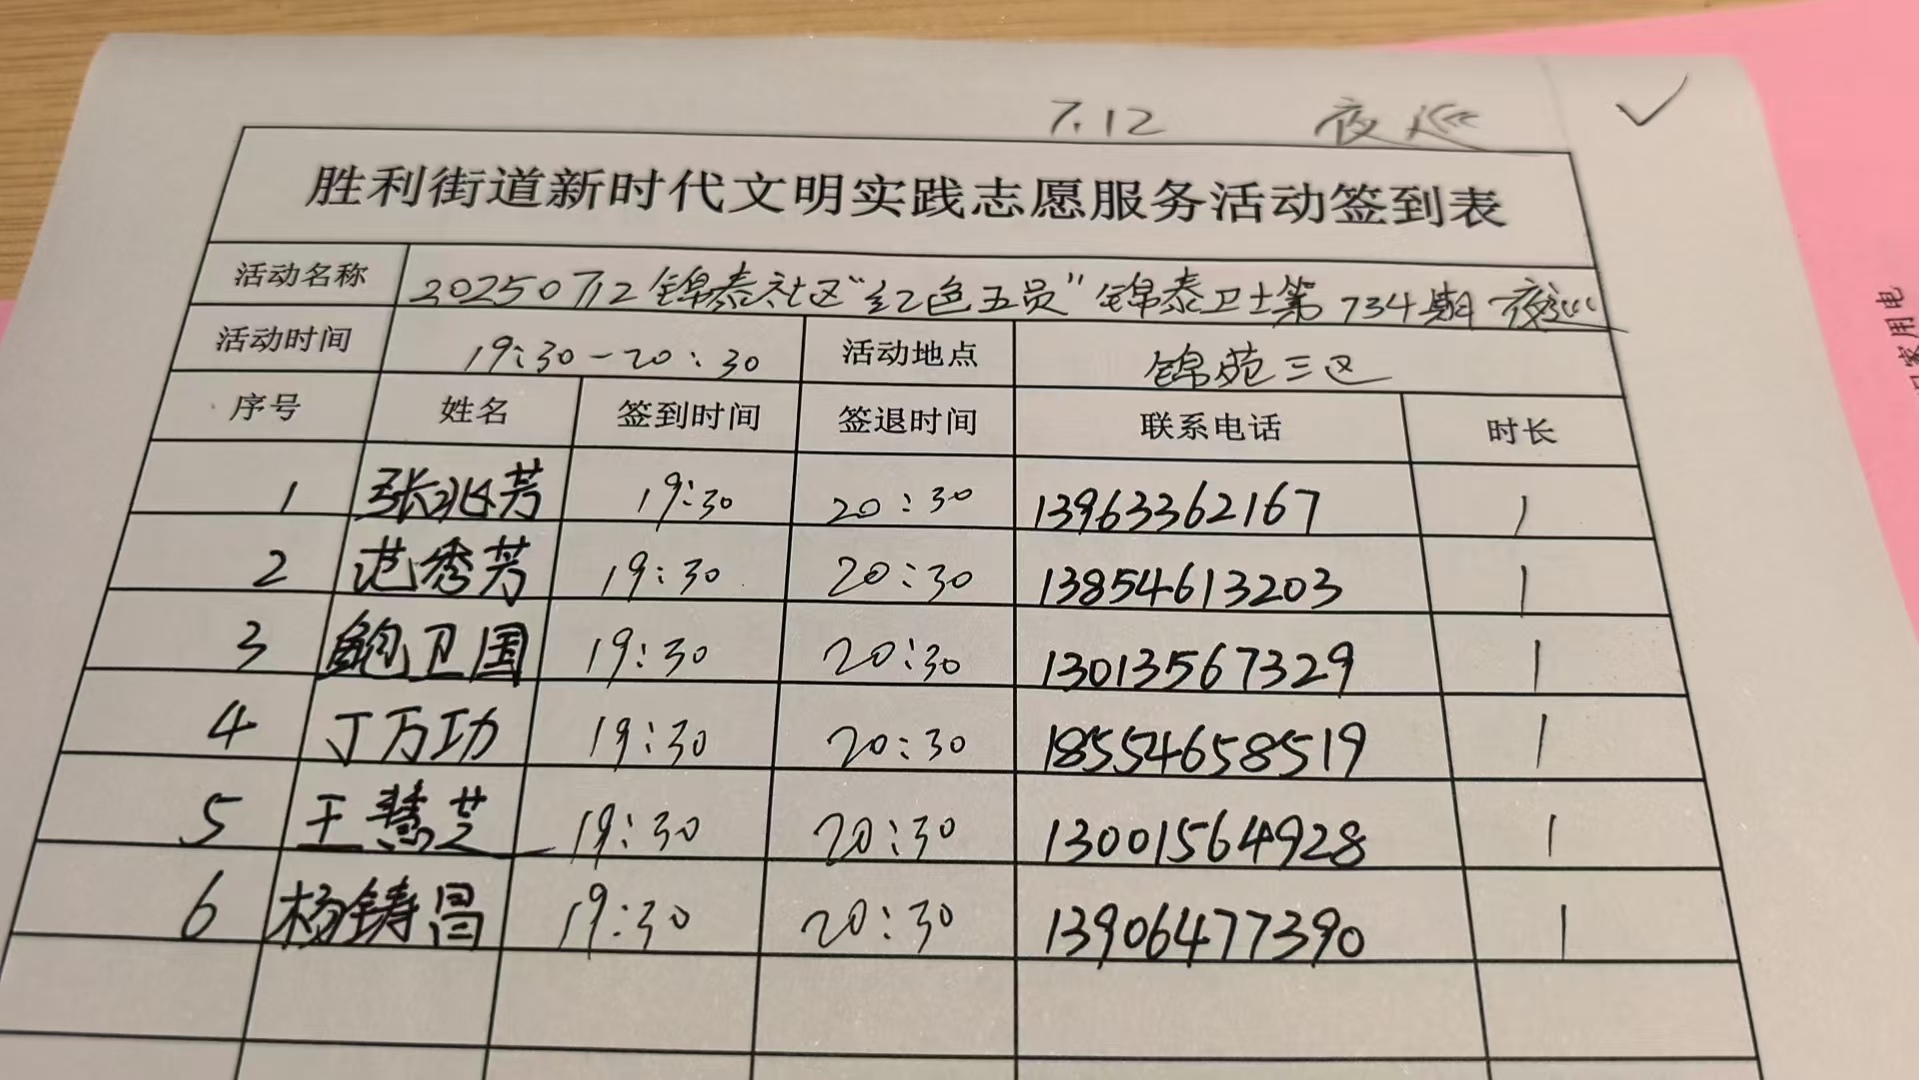 7.12 夜巡
胜利街道新时代文明实践志愿服务活动签到表
活动名称 20250712锦泰社区“红色五员”锦泰卫士第734期夜巡
活动时间 19:30-20:30 活动地点 锦苑三区
序号 姓名 签到时间 签退时间 联系电话 时长
1 张兆芳 19:30 20:30 13963362167 1
2 范秀芳 19:30 20:30 13854613203 1
3 鲍卫国 19:30 20:30 13013567329 1
4 丁万功 19:30 20:30 18554658519 1
5 王慧芝 19:30 20:30 13001564928 1
6 杨铸昌 19:30 20:30 13906477390 1
家用电